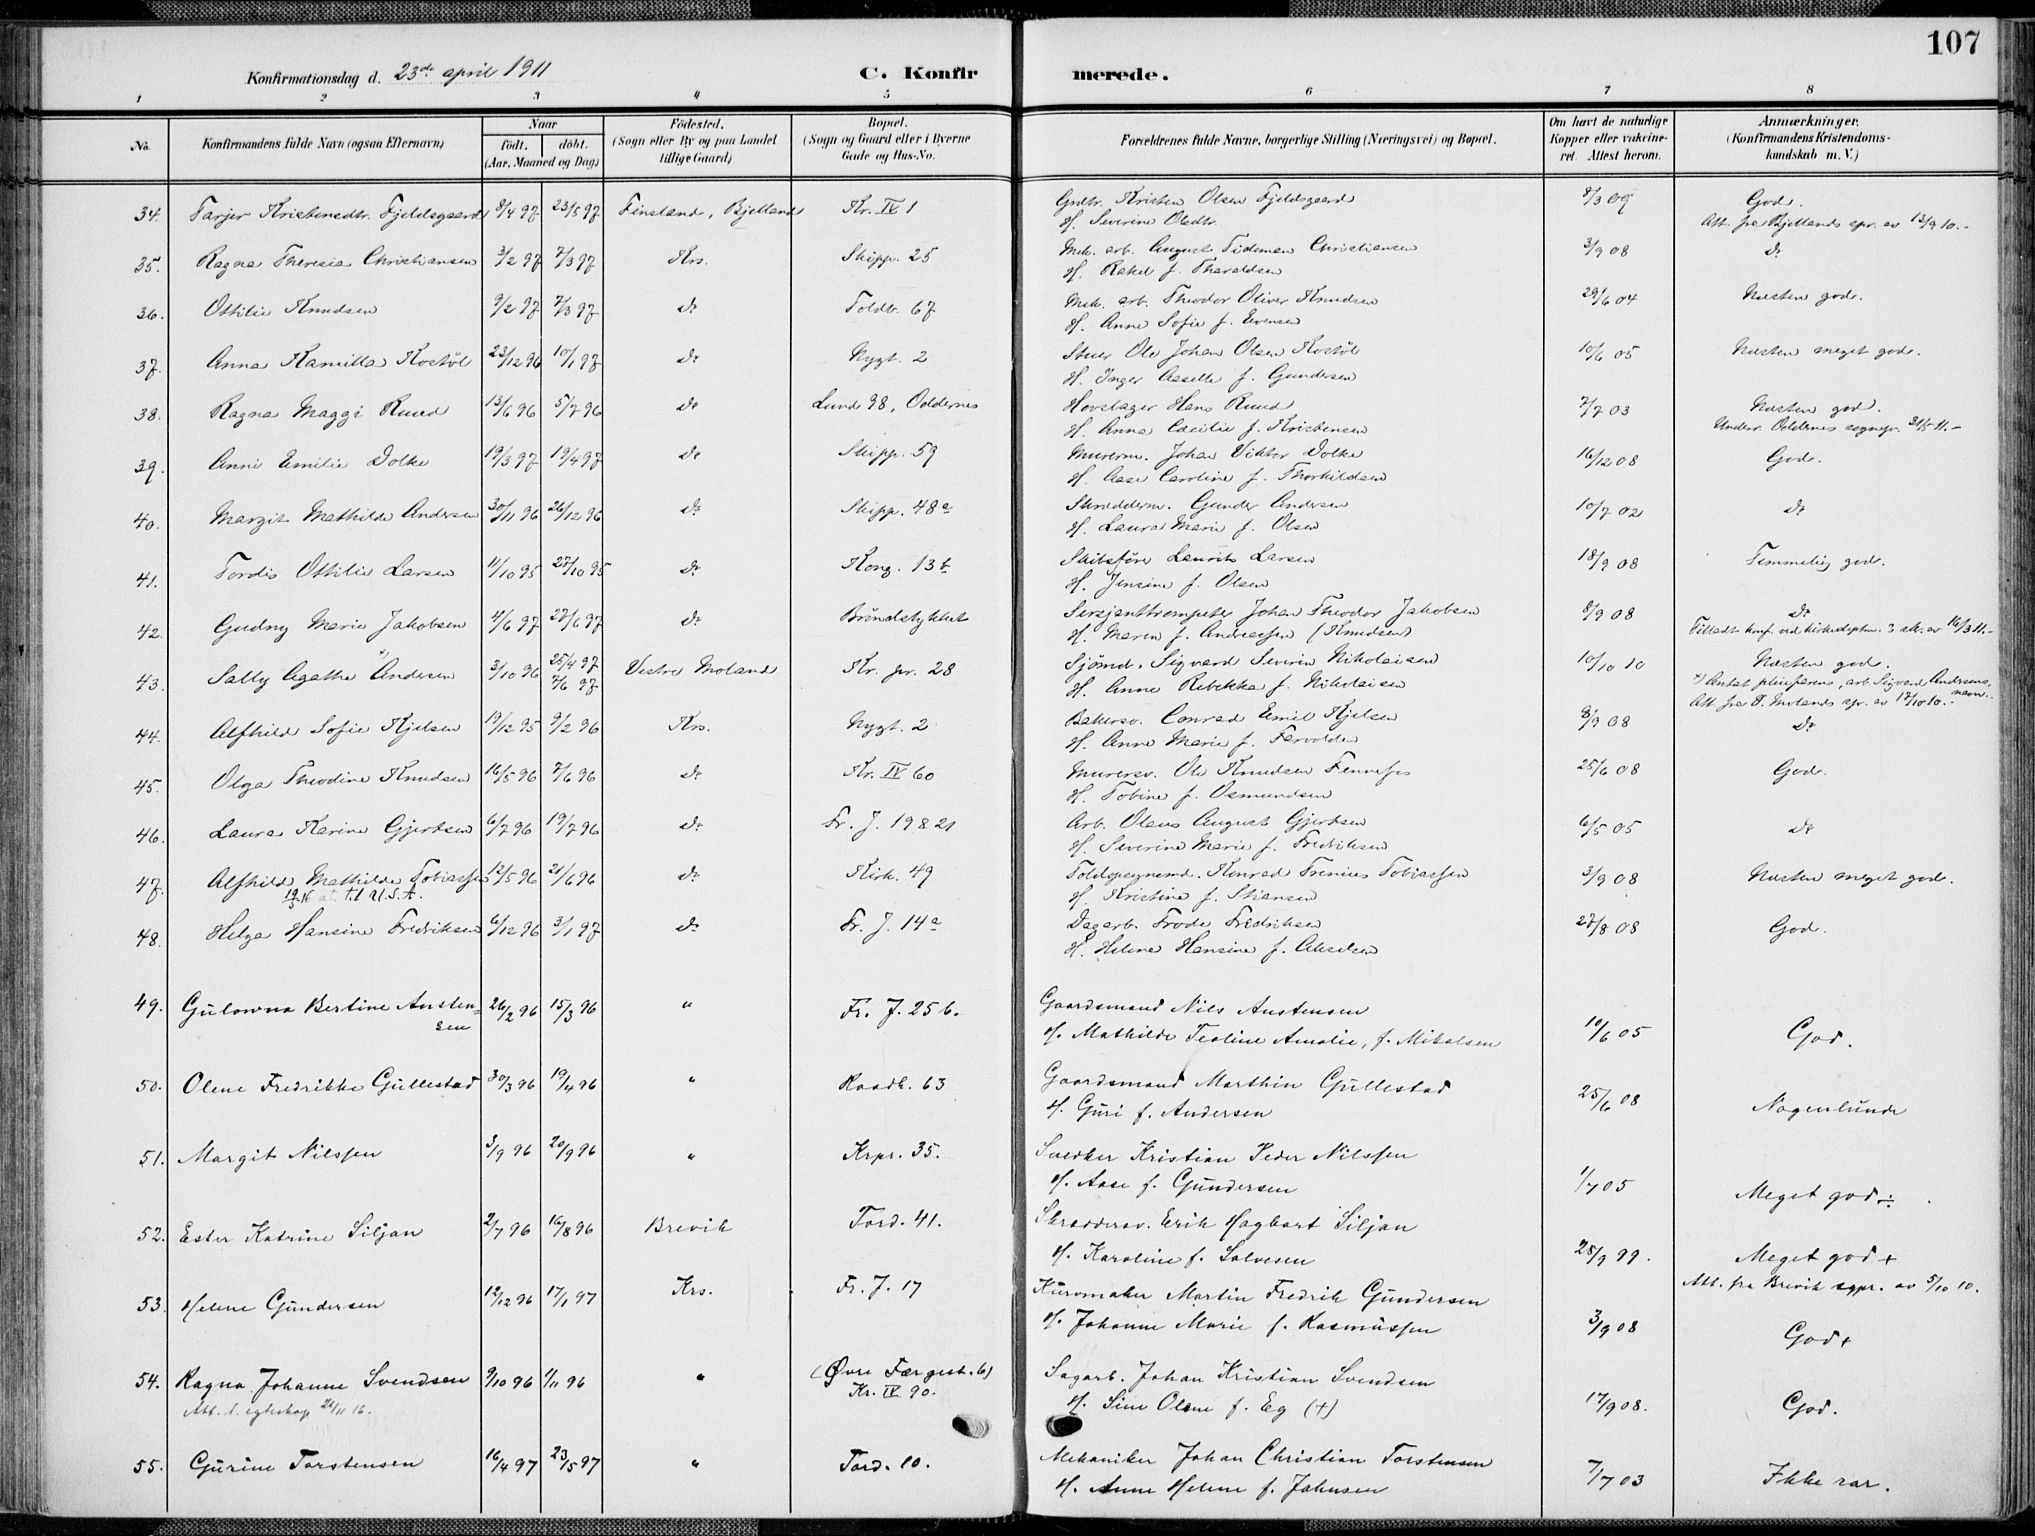 107
Konfirmationsdag d. 23de april 1911 C. Konfirmerede.
1 2 3 4 5 6 7 8
No. Konfirmandens fulde Navn (ogsaa Efternavn) Naar født. døbt. (Aar, Maaned og Dag) Fødested. (Sogn eller By og paa Landet tillige Gaard) Bopæl. (Sogn og Gaard eller i Byerne Gade og Hus-No. Forældrenes fulde Navne, borgerlige Stilling (Næringsvei) og Bopæl. Om havt de naturlige Kopper eller vakcineret. Attest herom. Anmærkninger. (Konfirmandens Kristendomskundskab m. V.)
34. Tarjer Kristensdtr. Fjeldsgaard 8/4 97 23/5 97 Finsland, Bjelland Kr. IV 1 Grdbr. Kristen Olsen Fjeldsgaard 8/3 09 God.
H. Severine Olsdtr. Att. fra Bjellands spr. av 13/9 10.-
35. Ragna Theresia Christiansen 3/2 97 7/3 97 Krs. Skipp. 25 Mek. arb. August Tideman Christiansen 3/9 08 do
H. Rakel f. Tharaldsen
36. Ottilie Knudsen 9/2 97 7/3 97 do Toldb. 67 Mek. arb. Theodor Oliver Knudsen 29/6 04 Næsten god.
H. Anne Sofie f. Evensen
37. Anna Kamilla Kostøl 23/12 96 10/1 97 do Nygt. 2 Stuer Ole Johan Olsen Kostøl 10/6 05 Næsten meget god.
H. Inger Aselle f. Gundersen
38. Ragna Maggi Ruud 13/6 96 5/7 96 do Lund 98, Oddernes Hovslager Hans Ruud 7/7 03 Næsten god.
H. Anna Cecilie f. Kristensen Underr. Oddernes sognepr. 31/5 11.-
39. Anni Emilie Dolke 19/3 97 19/4 97 do Skipp. 59 Murerm. Johan Viktor Dolke 16/12 08 God.
H. Aase Caroline f. Thorkildsen
40. Margit Mathilde Andersen 30/11 96 26/12 96 do Skipp. 48a Skredderm. Gunder Andersen 10/7 02 do
H. Laura Marie f. Olsen
41. Tordis Ottilie Larsen 11/10 95 27/10 95 do Kong. 13b Skibsfører Laurits Larsen 18/9 08 Temmelig god.
H. Jensine f. Olsen
42. Gudny Marie Jakobsen 4/6 97 27/6 97 do Brøndstykket Sersjanttrompeter Johan Theodor Jakobsen 8/9 08 do
H. Maren f. Andreassen (Knudsen) Tilladt konf. ved kirkedeptm. skr. av 16/3 11.-
43. Sally Agathe Andersen 3/10 96 25/4 97 Vestre Moland Kr. pr. 28 Sjømd. Sigvard Severin Nikolaisen 10/10 10 Næsten god.
7/6 97 H. Anne Rebekka f. Nikolaisen Antat pleiefarens, arb. Sigvard Andersens, navn.-
Att. fra V. Molands spr. av 17/10 10.-
44. Alfhild Sofie Kjelsen 19/12 95 9/2 96 Krs. Nygt. 2 Bakersv. Conrad Emil Kjelsen 8/9 08 do
H. Anne Marie f. Farvolden
45. Olga Theodine Knudsen 16/5 96 7/6 96 do Kr. IV 60 Murersv. Ole Knudsen Fennefos 25/6 08 God.
H. Tobine f. Osmundsen
46. Laura Karine Gjertsen 6/7 96 19/7 96 do Fr. J. 19 & 21 Arb. Olaus August Gjertsen 6/5 05 do
H. Severine Marie f. Fredriksen
47. Alfhild Mathilde Tobiassen 12/5 96 21/6 96 do Kirk. 49 Toldopsynsmd. Konrad Frenius Tobiassen 3/9 08 Næsten meget god.
19/3 16 at. til U.S.A. H. Kristine f. Stiansen
48. Helga Hansine Fredriksen 6/12 96 3/1 97 do Fr. J. 14a Dagarb. Frode Fredriksen 27/8 08 God.
H. Helene Hansine f. Akselsen
49. Gulowna Bertine Austensen 26/2 96 15/3 96 " Fr. J. 25 b. Gaardsmand Nils Austensen
H. Mathilde Teoline Amalie, f. Mikalsen 10/6 05 God.
50. Olene Fredrikke Gullestad 30/3 96 19/4 96 " Raadh. 63 Gaardsmand Marthin Gullestad
H. Guri f. Andersen 25/6 08 Nogenlunde
51. Margit Nilssen 3/9 96 20/9 96 " Krpr. 35. Snedker Kristian Peder Nilssen
H. Aase f. Gundersen 1/7 05 Meget god ÷
52. Ester Katrine Siljan 2/7 96 16/8 96 Brevik Tord. 41. Skræddersv. Erik Hagbart Siljan
H. Karoline f. Salvesen 28/9 99. Meget god +
Att. fra Brevik sgpr. av 5/10 10.
53. Helene Gundersen 12/12 96 17/1 97 Krs. Fr. J. 17 Kurvmaker Martin Fredrik Gundersen
H. Johanne Marie f. Rasmussen 3/9 08 God +
54. Ragna Johanne Svendsen 9/10 96 1/11 96 " (Øvre Færgest. 6) Sagarb. Johan Kristian Svendsen
Att. t. egteskap 21/11 16. Kr. IV 90. H. Sine Olene f. Eg (+) 17/9 08. God.
55. Gurine Torstensen 16/4 97 23/5 97 " Tord. 10. Mekaniker Johan Christian Torstensen
H. Anne Helene f. Johnsen 7/7 03 Ikke rar.